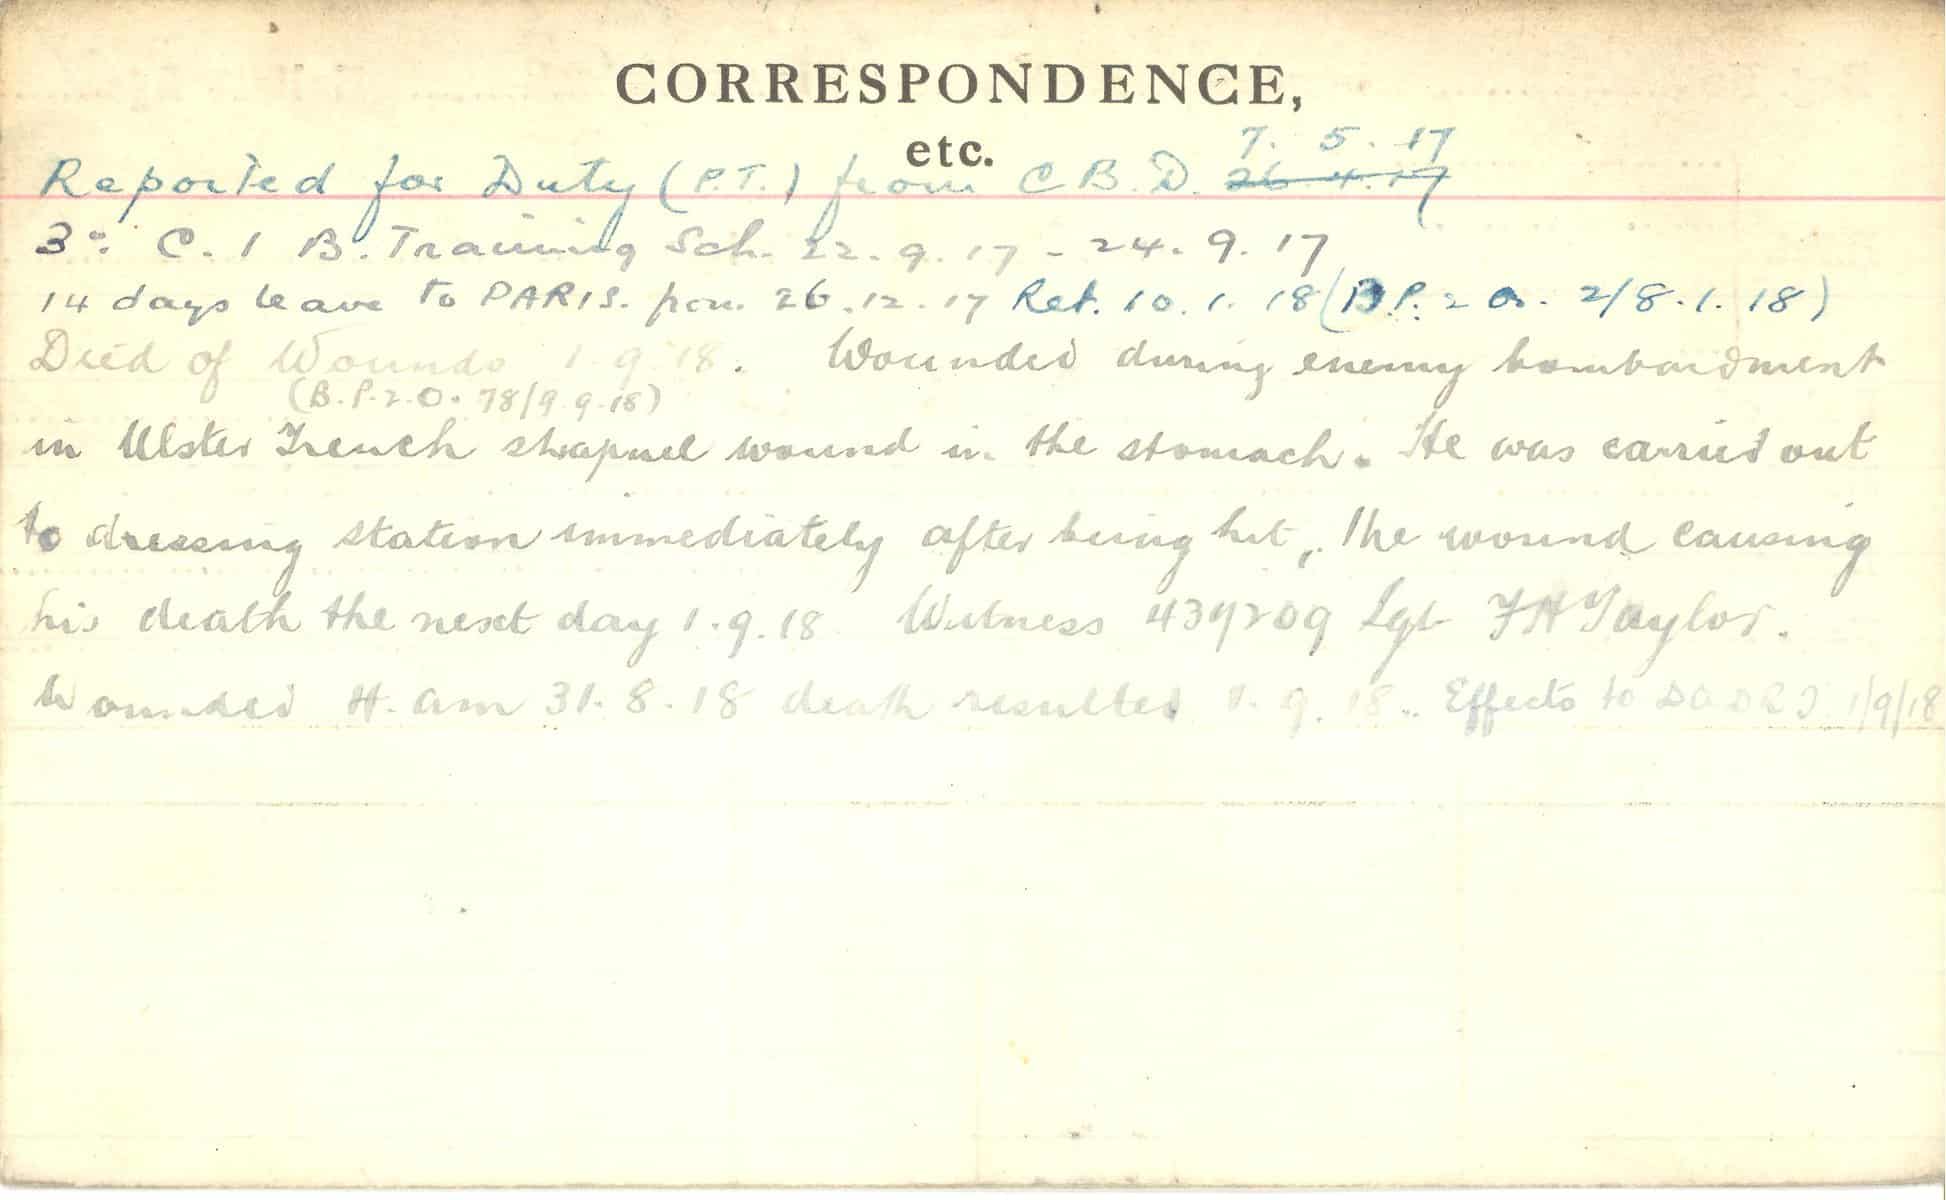 CORRESPONDENCE,
etc.
7. 5. 17
Reported for Duty (P.T.) from C.B.D. 26.4.17
3rd C. I B. Training Sch. 22.9.17 - 24.9.17
14 days leave to PARIS. from 26.12.17 Ret. 10.1.18 (B.P. 2 O. 2/8.1.18)
Died of Wounds 1.9.18. Wounded during enemy bombardment
(B.P.2.O. 78/9.9.18)
in Ulster Trench shrapnel wound in the stomach. He was carried out
to dressing station immediately after being hit, the wound causing
his death the next day 1.9.18 Witness 439209 Sgt F H Taylor.
Wounded 4. am 31.8.18 death resulted 1.9.18. Effects to 1/9/18